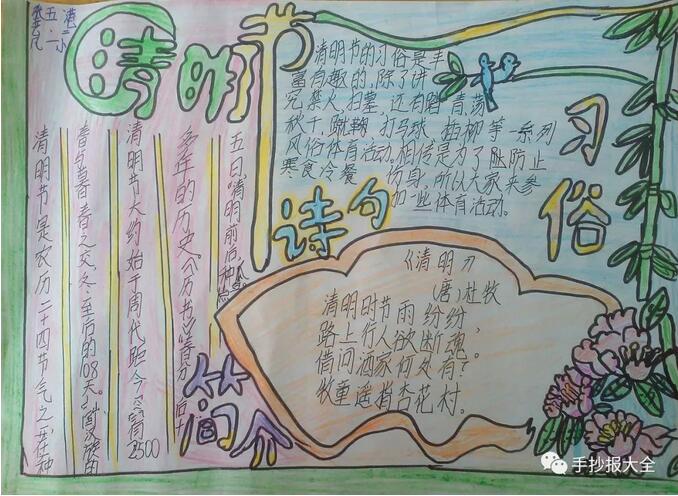 五.一
港二小
清明节
清明节的习俗是丰
富有趣的,除了讲
究禁火、扫墓,还有踏青、荡
秋千、蹴鞠、打马球、插柳等一系列
风俗体育活动。相传是为了防止
寒食冷餐伤身,所以大家来参
加一些体育活动。
习俗
诗句
《清明》
(唐)杜牧
清明时节雨纷纷,
路上行人欲断魂。
借问酒家何处有?
牧童遥指杏花村。
清明节是农历二十四节气之一,在仲
春与暮春之交,冬至后的108天。
清明节大约始于周代,距今已有2500
多年的历史。《历书》:"春分后十
五日
清明前后,种
简介
手抄报大全